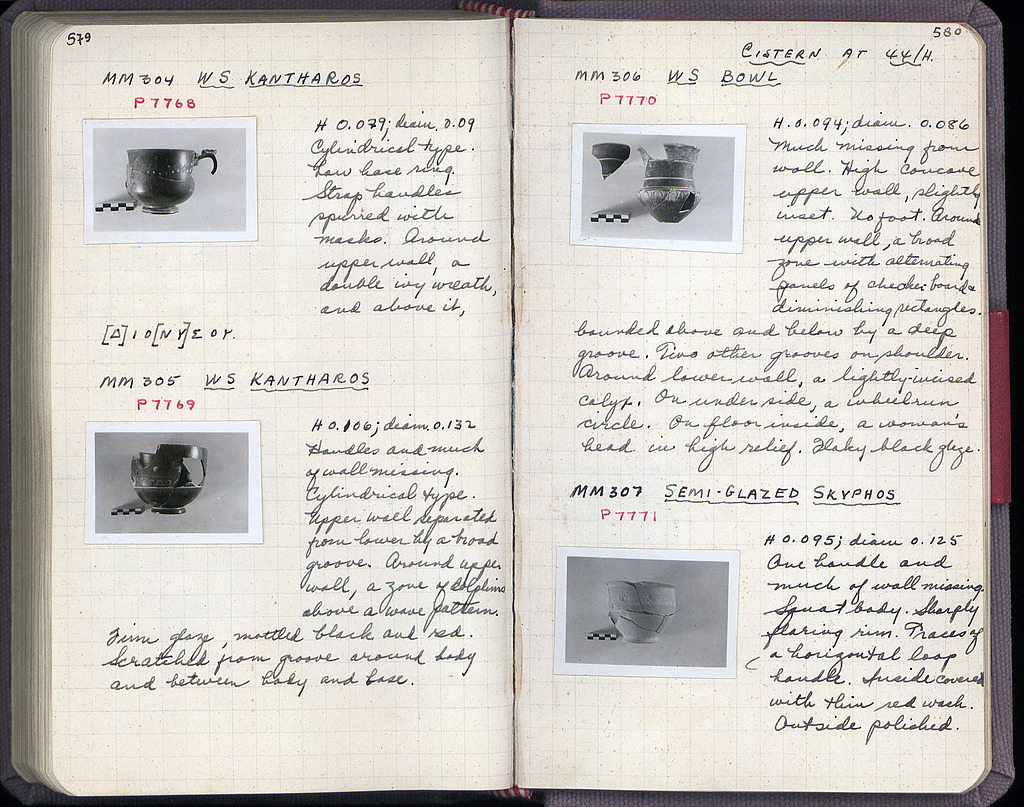 579
MM 304 WS KANTHAROS
P 7768
H 0.079; diam. 0.09
Cylindrical type.
Low base ring.
Strap handles
spurred with
masks. Around
upper wall, a
double ivy wreath,
and above it,
[Δ]ΙΟ[ΝΥ]ΣΟΥ.
MM 305 WS KANTHAROS
P 7769
H 0.106; diam. 0.132
Handles and much
of wall missing.
Cylindrical type.
Upper wall separated
from lower by a broad
groove. Around upper
wall, a zone of dolphins
above a wave pattern.
Firm glaze, mottled black and red.
Scratched from groove around body
and between body and base.
580
CISTERN AT 44/Η.
MM 306 WS BOWL
P 7770
H. 0.094; diam. 0.086
Much missing from
wall. High concave
upper wall, slightly
inset. No foot. Around
upper wall, a broad
zone with alternating
panels of checkerboard &
diminishing rectangles,
bounded above and below by a deep
groove. Two other grooves on shoulder.
Around lower wall, a lightly-incised
calyx. On under side, a wheelrun
circle. On floor inside, a woman's
head in high relief. Flaky black glaze.
MM 307 SEMI-GLAZED SKYPHOS
P 7771
H 0.095; diam 0.125
One handle and
much of wall missing.
Squat body. Sharply
flaring rim. Traces of
a horizontal loop
handle. Inside covered
with thin red wash.
Outside polished.